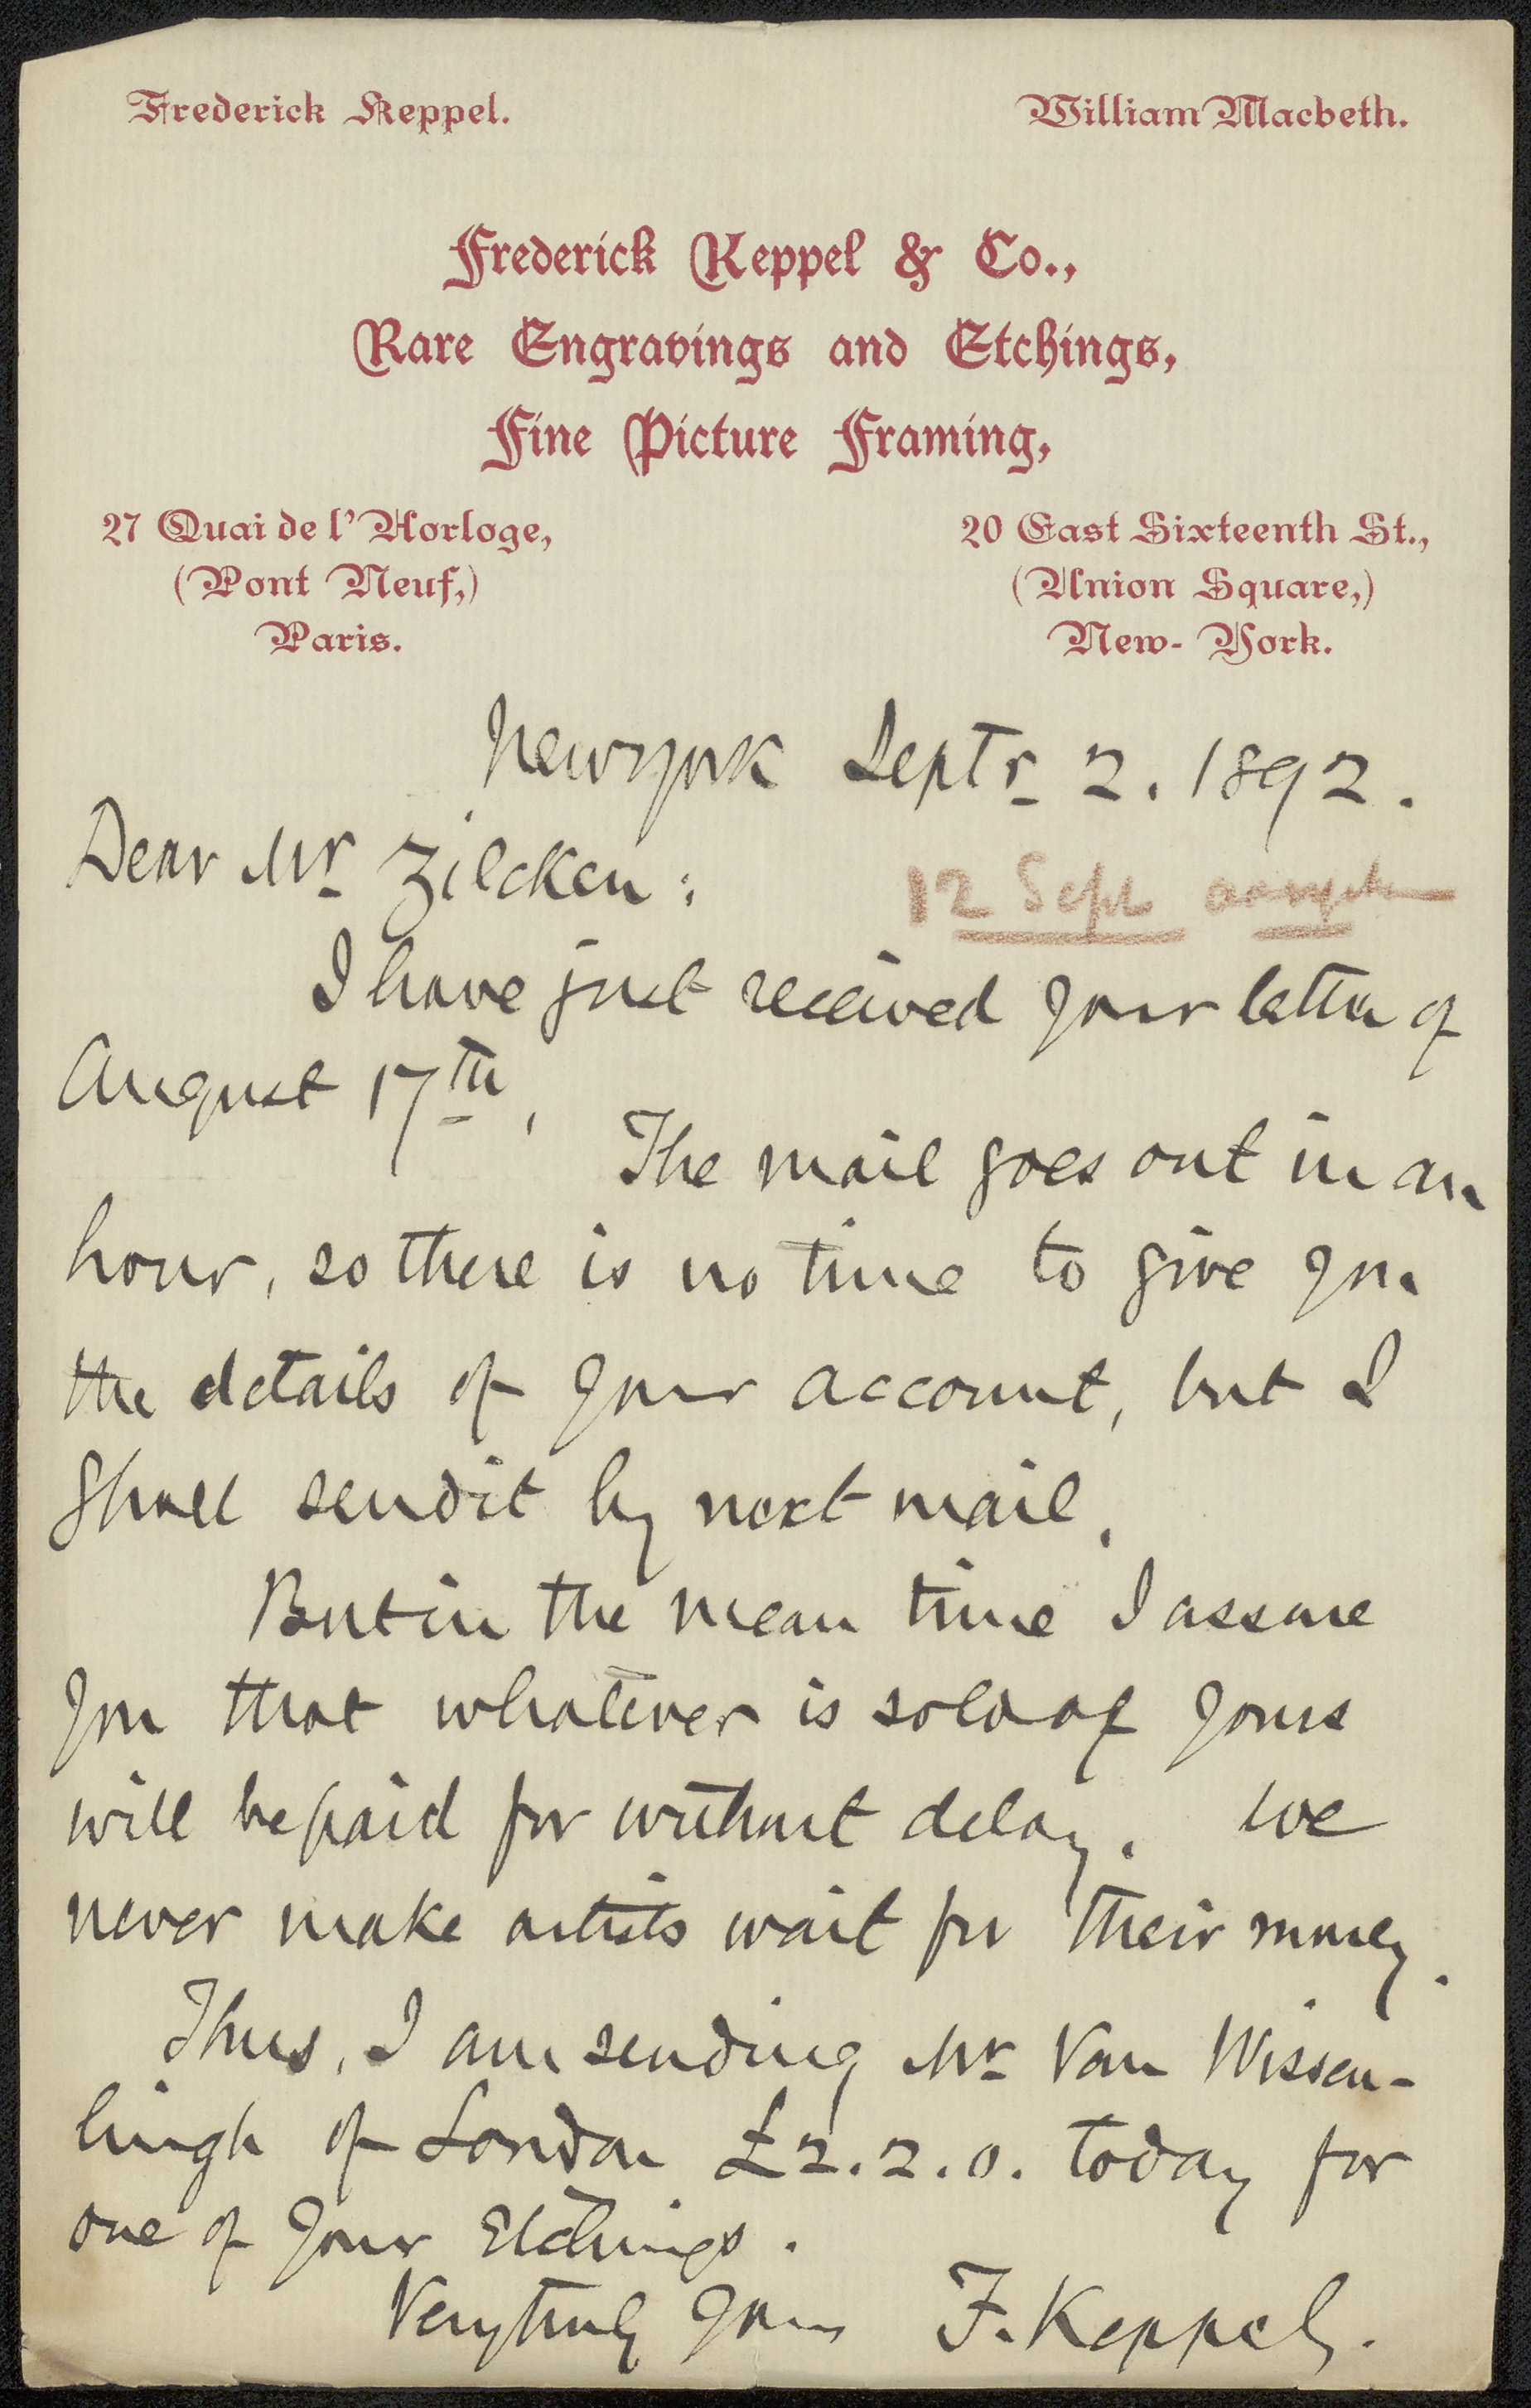 Frederick Keppel.
William Macbeth.
Frederick Keppel & Co.,
Rare Engravings and Etchings,
Fine Picture Framing,
27 Quai de l'Horloge,
(Pont Neuf,)
Paris.
20 East Sixteenth St.,
(Union Square,)
New-York.
New York Septr 2. 1892.
Dear Mr Zilcken:
12 Sept
I have just received your letter of
August 17th.
The mail goes out in an
hour, so there is no time to give you
the details of your account, but I
shall send it by next mail.
But in the mean time I assure
you that whatever is sold of yours
will be paid for without delay. We
never make artists wait for their money.
Thus, I am sending Mr Van Wissen-
lingh of London £2.2.0. today for
one of your Etchings.
Very truly yours F. Keppel.